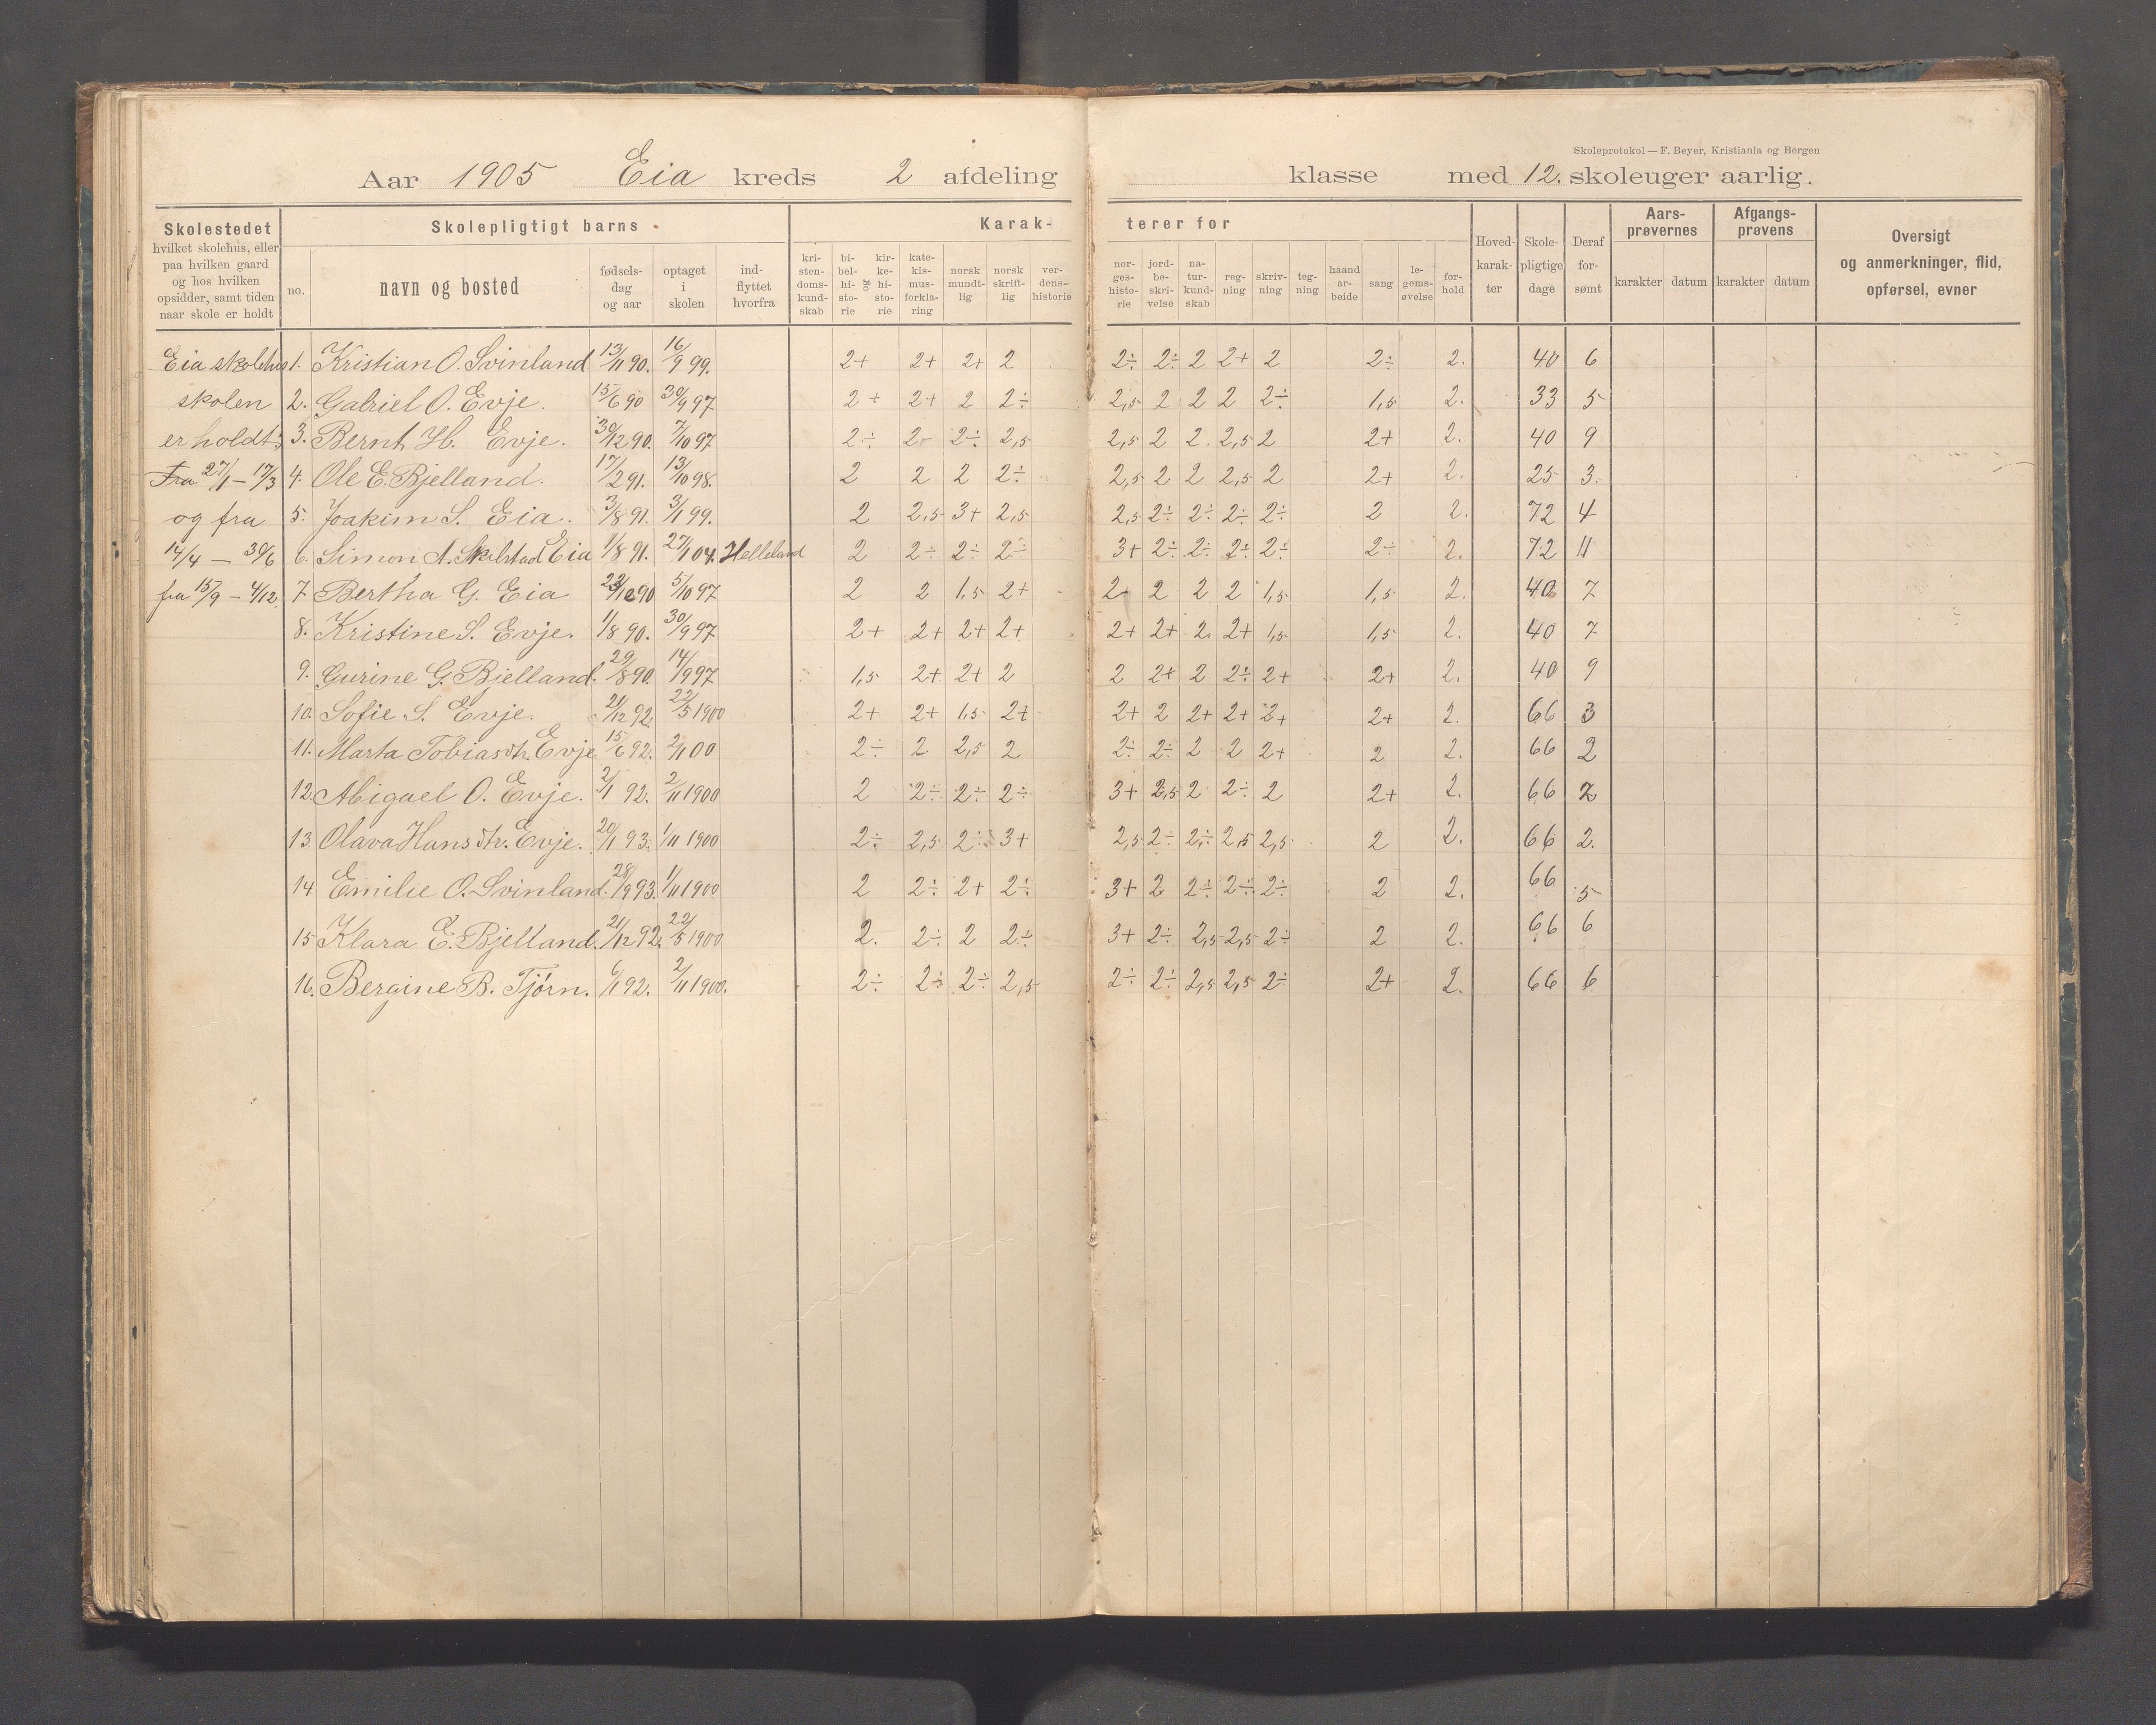 Skoleprotokol — F. Beyer, Kristiania og Bergen
Aar 1905 Eia kreds 2 afdeling klasse med 12. skoleuger aarlig.
Skolestedet
hvilket skolehus, eller paa hvilken gaard og hos hvilken opsidder, samt tiden naar skole er holdt
Skolepligtigt barns
no. navn og bosted fødselsdag og aar optaget i skolen indflyttet hvorfra
Karakterer for
kristendomskundskab bibelhistorie og kirkehistorie katekismusforklaring norsk mundtlig norsk skriftlig verdenshistorie norgeshistorie jordbeskrivelse naturkundskab regning skrivning tegning haandarbeide sang legemsøvelse forhold
Hovedkarakter Skolepligtige dage Deraf forsømt
Aarsprøvernes karakter datum
Afgangsprøvens karakter datum
Oversigt og anmerkninger, flid, opførsel, evner
Eia skolehus 1. Kristian O. Svinland 13/11 90. 16/9 99. 2+ 2+ 2+ 2 2÷ 2÷ 2 2+ 2 2÷ 2. 40 6
skolen 2. Gabriel O. Evje. 15/6 90 30/9 97 2+ 2+ 2 2÷ 2,5 2 2 2 2÷ 1,5 2. 33 5
er holdt: 3. Bernt H. Evje. 30/12 90. 7/10 97 2÷ 2- 2÷ 2,5 2,5 2 2. 2,5 2 2+ 2. 40 9
Fra 27/1 – 17/3 4. Ole E. Bjelland. 17/2 91. 13/10 98. 2 2 2 2÷ 2,5 2 2 2,5 2 2+ 2. 25 3.
og fra 5. Joakim S. Eia. 3/8 91. 3/1 99. 2 2,5 3+ 2,5 2,5 2÷ 2÷ 2÷ 2÷ 2 2. 72 4
14/4 — 30/6 6. Simon A. Eia 1/8 91. 27/1 04. Helleland 2 2÷ 2÷ 2÷ 3+ 2÷ 2÷ 2÷ 2÷ 2÷ 2. 72 11
fra 15/9 – 4/12. 7 Bertha G. Eia 90 5/10 97 2 2 1,5 2+ 2+ 2 2 2 1,5 1,5 2. 40 7
8. Kristine S. Evje. 1/8 90. 30/9 97 2+ 2+ 2+ 2+ 2+ 2+ 2. 2+ 1,5 1,5 2. 40 7
9. Gurine G. Bjelland. 29/8 90. 14/9 97 1,5 2+ 2+ 2 2 2+ 2 2÷ 2+ 2+ 2. 40 9
10. Sofie S. Evje. 21/12 92. 22/5 1900 2+ 2+ 1,5 2+ 2+ 2 2+ 2+ 2+ 2+ 2. 66 3
11. Marta Tobiasdtr. Evje 15/6 92. 2/11 00 2÷ 2 2,5 2 2÷ 2÷ 2 2 2+ 2 2. 66 2
12. Abigael O. Evje. 2/1 92. 2/11 1900 2 2÷ 2÷ 2÷ 3+ 2,5 2 2÷ 2 2+ 2. 66 2
13. Olava Hansdtr. Evje. 20/1 93. 1/11 1900 2÷ 2,5 2÷ 3+ 2,5 2÷ 2÷ 2,5 2,5 2 2. 66 2.
14 Emilie O. Svinland. 28/9 93. 1/11 1900 2 2÷ 2+ 2÷ 3+ 2 2÷ 2÷ 2÷ 2 2. 66 5
15 Klara E. Bjelland. 21/12 92. 22/5 1900 2. 2÷ 2 2÷ 3+ 2÷ 2,5 2,5 2÷ 2 2. 66 6
16. Bergine B. Tjørn. 6/1 92. 2/11 1900. 2÷ 2÷ 2÷ 2,5 2÷ 2÷ 2,5 2,5 2÷ 2+ 2. 66 6